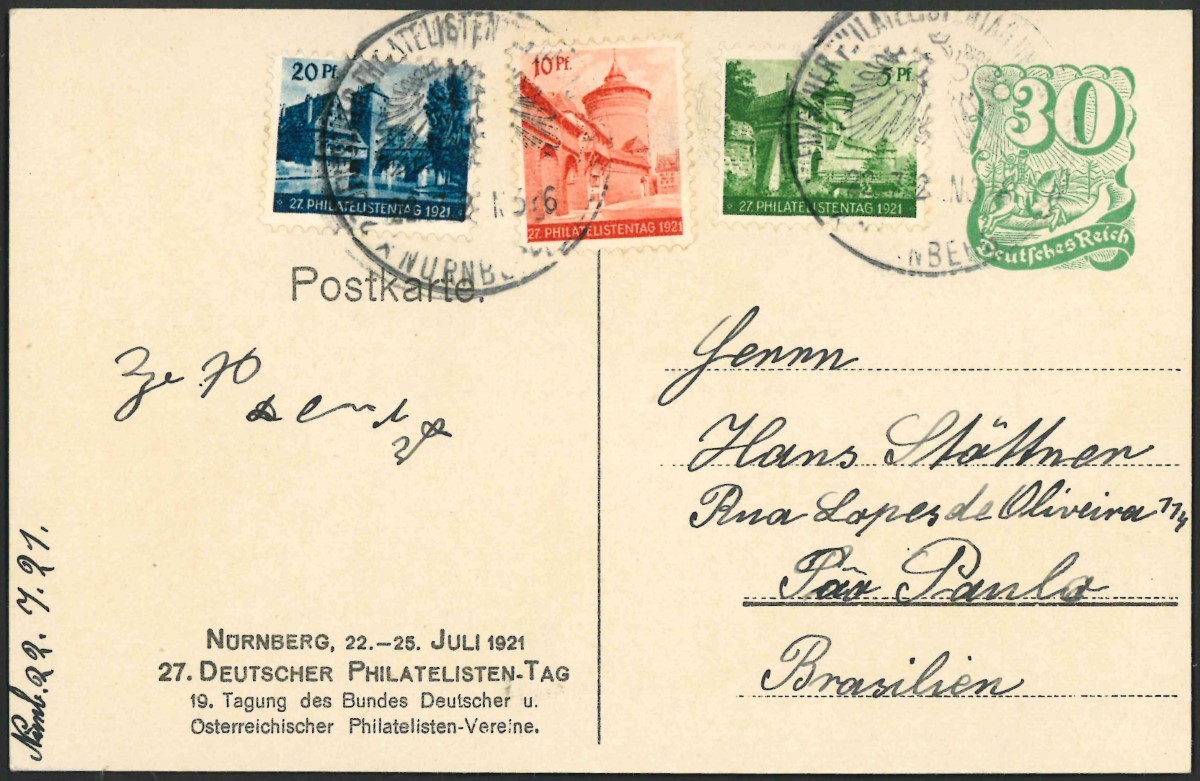 20 Pf.
27. PHILATELISTENTAG 1921
10 Pf.
27. PHILATELISTENTAG 1921
5 Pf.
27. PHILATELISTENTAG 1921
30
Deutsches Reich
Postkarte.
Herrn
Hans Stöttner
Rua Lopes de Oliveira
São Paulo
Brasilien
Nürnb. 22. 7. 21.
NÜRNBERG, 22.–25. JULI 1921
27. DEUTSCHER PHILATELISTEN-TAG
19. Tagung des Bundes Deutscher u.
Österreichischer Philatelisten-Vereine.